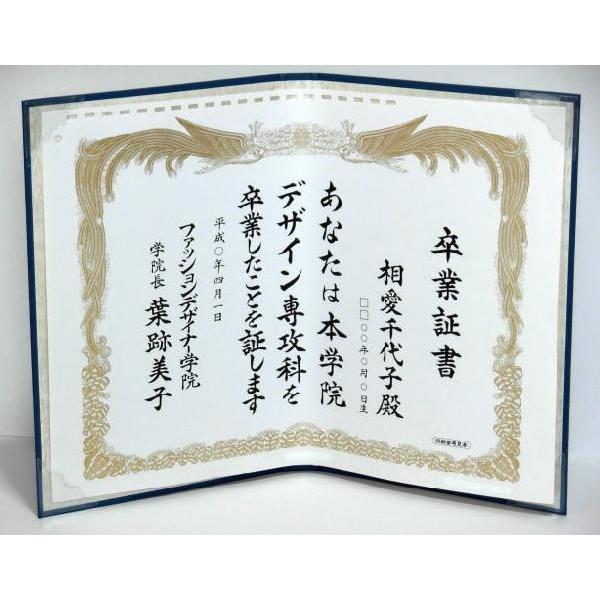 卒業証書
相愛千代子殿
□□○○年○月○日生
あなたは本学院
デザイン専攻科を
卒業したことを証します
平成○年四月一日
ファッションデザイナー学院
学院長 葉跡美子